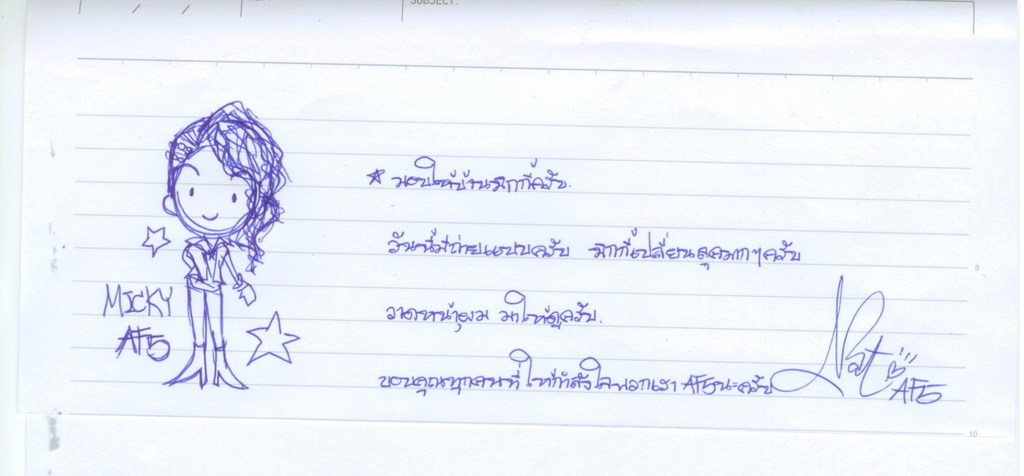 SUBJECT:
☆ มอบให้บ้านมิกกี้ครับ.
วันนี้มีถ่ายแบบครับ มิกกี้เปลี่ยนลุคมากๆครับ
วาดหน้าผม มาให้ดูครับ.
ขอบคุณทุกคนที่ให้กำลังใจพวกเรา AF5นะครับ
MICKY
AF5
Nat
AF5
10